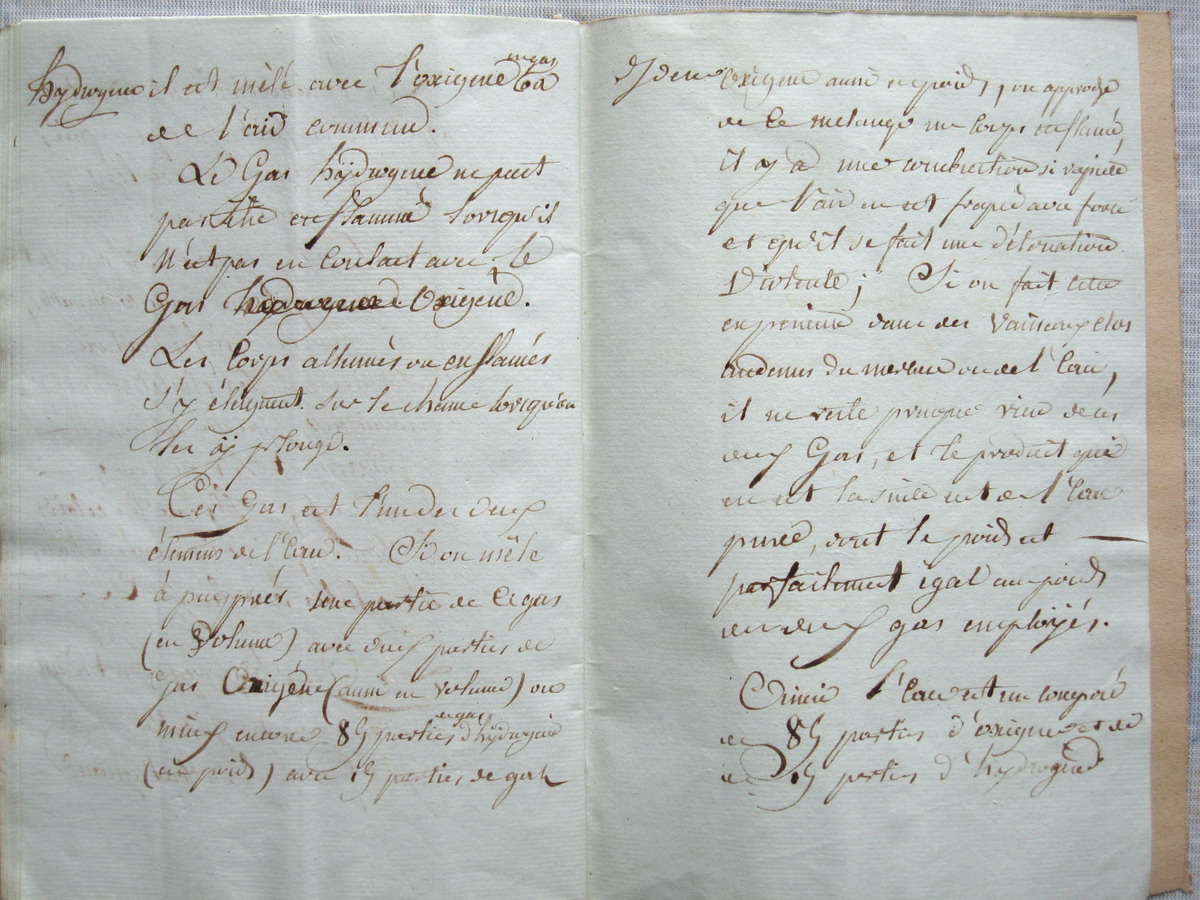 hydrogene il est mêlé avec l'oxigene en gas ou
de l'air commun.
Le Gas hydrogene ne peut
pas être enflammé lorsqu'il
n'est pas en contact avec le
Gas hydrogene Oxigène.
Les Corps allumés ou enflamés
s'y éteignent sur le champ lorsqu'on
les ÿ plonge.
Ces Gas est l'un des deux
élémens de l'Eau. Si on mêle
à peu près une partie de ce gas
(en Volume) avec deux parties de
gas Oxigène (aussi en volume) ou
mieux encore 85 parties de gas d'hydrogene
(en poids) avec 15 parties de gas
Oxigene aussi en poids, on approche
de ce melange un Corps enflamé,
il y a une combustion si rapide
que l'air en est frapé avec force
et qu'il se fait une détonation
Violente; Si on fait cette
experience dans des Vaisseaux clos
au dessus du mercure ou de l'Eau,
il ne reste presque rien de ces
deux Gas, et le produit qui
en est la suite est de l'Eau
pure, dont le poids est
parfaitement égal au poids
des deux gas employés.
Ainsi l'Eau est un composé
de 85 parties d'oxigene et de
de 15 parties d'hydrogène